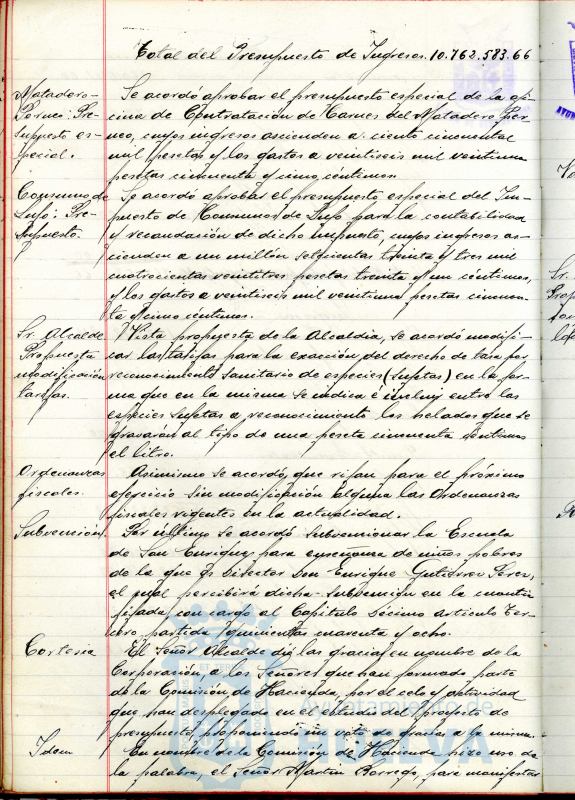 Total del Presupuesto de Ingresos. 10.762.583.66
Matadero-
Porno: Pre-
supuesto es-
pecial.
Se acordó aprobar el presupuesto especial de la ofi-
cina de Contratación de Carnes del Matadero Por-
no, cuyos ingresos ascienden a ciento cincuenta
mil pesetas y los gastos a veintiseis mil veintiuna
pesetas cincuenta y cinco céntimos.
Consumo de
Lujo: Pre-
supuesto.
Se acordó aprobar el presupuesto especial del Im-
puesto de Consumos de Lujo para la contabilidad
y recaudación de dicho Impuesto, cuyos ingresos as-
cienden a un millón seiscientas treinta y tres mil
cuatrocientas veintitres pesetas treinta y un céntimos,
y los gastos a veintiseis mil veintiuna pesetas cincuen-
ta y cinco céntimos.
Sr. Alcalde
Propuesta
modificación
tarifas.
Vista propuesta de la Alcaldía, se acordó modifi-
car las tarifas para la exacción del derecho de tasa por
reconocimiento sanitario de especies (sujetas) en la for-
ma que en la misma se indica é incluir entre las
especies sujetas a reconocimiento los helados que se
gravarán al tipo de una peseta cincuenta céntimos
el litro.
Ordenanzas
fiscales.
Asimismo se acordó, que rijan para el próximo
ejercicio sin modificación alguna las Ordenanzas
fiscales vigentes en la actualidad.
Subvención.
Por último se acordó subvencionar la Escuela
de San Enrique, para enseñanza de niños pobres
de la que es Director Don Enrique Gutiérrez Perez,
el cual percibirá dicha subvención en la cuantía
fijada con cargo al Capítulo Décimo Artículo Ter-
cero, partida quinientas cuarenta y ocho.
Cortesia
El Señor Alcalde dió las gracias en nombre de la
Corporación, a los Señores que han formado parte
de la Comisión de Hacienda, por el celo y actividad
que han desplegado en el estudio del proyecto de
presupuesto, proponiendo un voto de gracias a la misma.
Idem
En nombre de la Comisión de Hacienda hizo uso de
la palabra, el Señor Martín Borrego, para manifestar
Ayuntamiento de
HUELVA